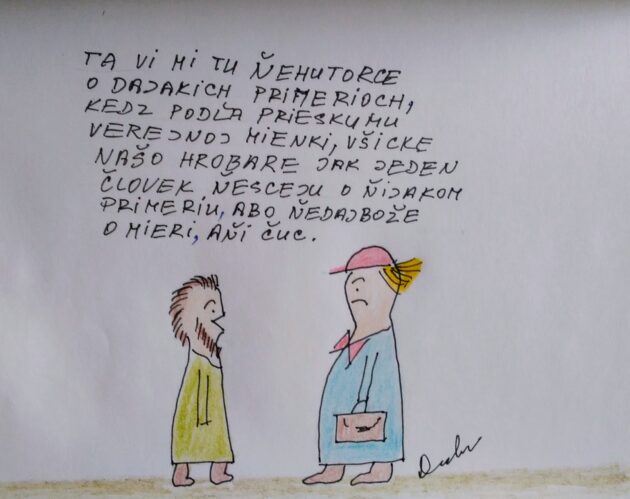 TA VI MI TU ŇEHUTORCE
O DAJAKICH PRIMERIOCH,
KEDZ PODĽA PRIESKUMU
VEREJNOJ MIENKI, VŠICKE
NAŠO HROBARE JAK JEDEN
ČLOVEK ŇESCEJU O ŇIJAKOM
PRIMERIU, ABO ŇEDAJBOŽE
O MIERI, AŇI ČUC.